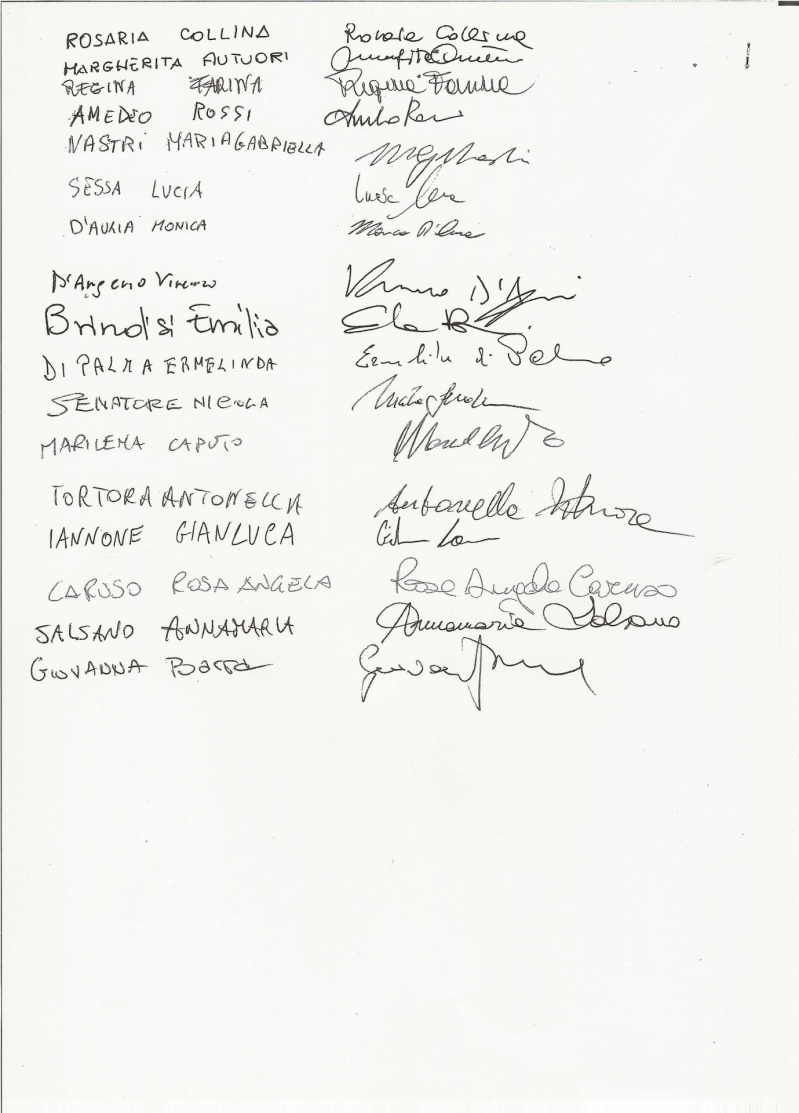 ROSARIA COLLINA
MARGHERITA AUTUORI
REGINA FARINA Regina Farina
AMEDEO ROSSI
NASTRI MARIAGABRIELLA
SESSA LUCIA Lucia
D'AURIA MONICA Monica D'Auria
D'Angelo Vincenzo
Brindisi Emilia
DI PALMA ERMELINDA di Palma
SENATORE NICOLA
MARILENA CAPUTO
TORTORA ANTONELLA Antonella Tortora
IANNONE GIANLUCA
CARUSO ROSA ANGELA Rosa Angela Caruso
SALSANO ANNAMARIA Annamaria Salsano
GIOVANNA Barra